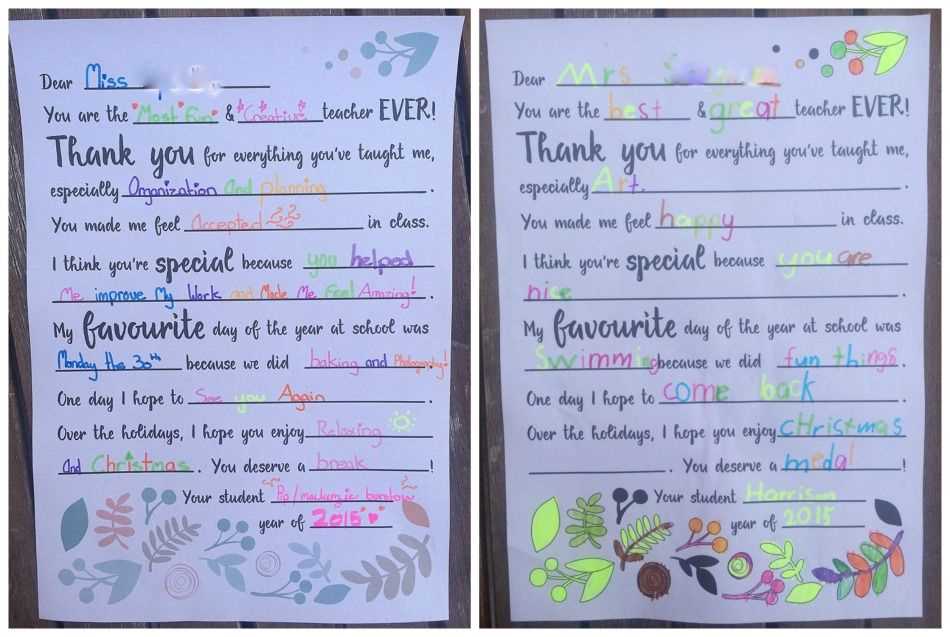 Dear Miss
You are the Most Fun & Creative teacher EVER!
Thank you for everything you've taught me,
especially Organization and planning .
You made me feel Accepted in class.
I think you're special because you helped
Me improve My Work and Made Me Feel Amazing! .
My favourite day of the year at school was
Monday the 30th because we did baking and Photography!
One day I hope to See you Again .
Over the holidays, I hope you enjoy Relaxing
And Christmas . You deserve a break !
Your student Pip/mackenzie
year of 2015
Dear Mrs
You are the best & great teacher EVER!
Thank you for everything you've taught me,
especially Art. .
You made me feel happy in class.
I think you're special because you are
nice .
My favourite day of the year at school was
Swimming because we did fun things.
One day I hope to come back .
Over the holidays, I hope you enjoy cHristmas
. You deserve a medal !
Your student Harrison
year of 2015